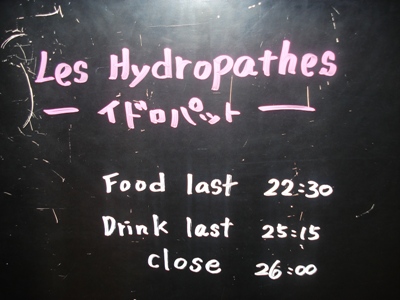 Les Hydropathes
— イドロパット —
Food last 22:30
Drink last 25:15
close 26:00